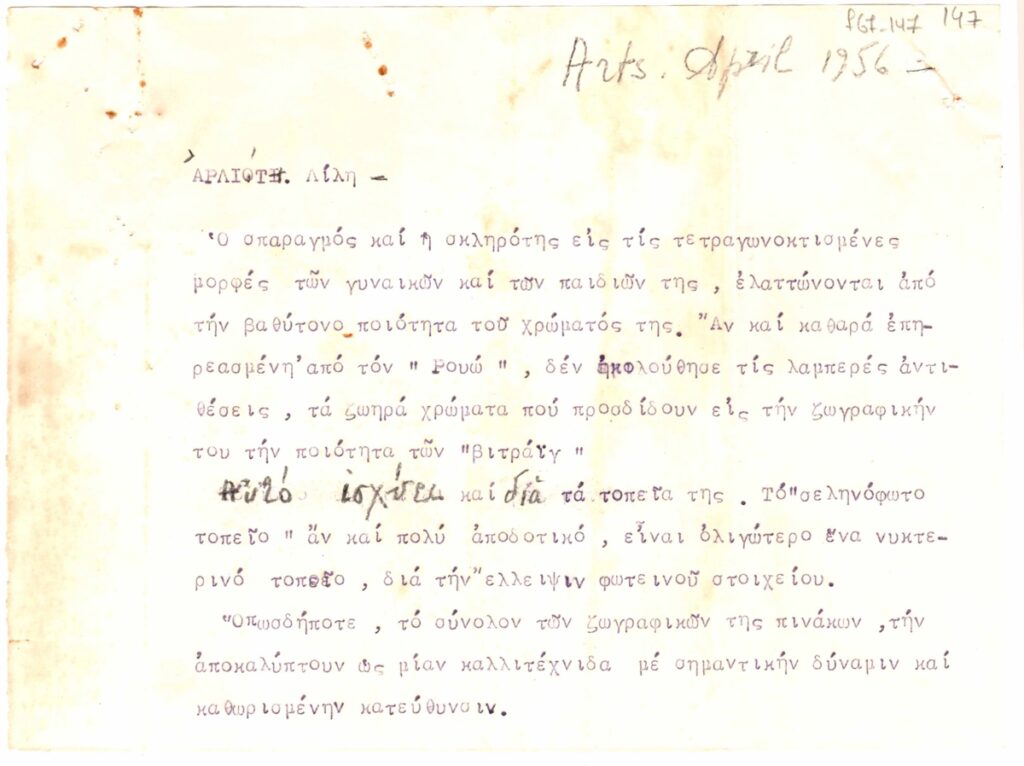 967-147 147
Arts. April 1956 –
ἈΡΛΙΌΤΗ. Λίλη –
Ὁ σπαραγμός καί ἡ σκληρότης εἰς τίς τετραγωνοκτισμένες
μορφές τῶν γυναικῶν καί τῶν παιδιῶν της , ἐλαττώνονται ἀπό
τήν βαθύτονο ποιότητα τοῦ χρώματός της. Ἄν καί καθαρά ἐπη-
ρεασμένη ἀπό τόν " Ρουώ " , δέν ἠκολούθησε τίς λαμπερές ἀντι-
θέσεις , τά ζωηρά χρώματα πού προσδίδουν εἰς τήν ζωγραφικήν
του τήν ποιότητα τῶν "βιτράυγ "
Αὐτό ἰσχύει καί διά τά τοπεῖα της . Τό "σεληνόφωτο
τοπεῖο " ἄν καί πολύ ἀποδοτικό , εἶναι ὀλιγώτερο ἕνα νυκτε-
ρινό τοπεῖο , διά τήν ἔλλειψιν φωτεινοῦ στοιχείου.
Ὁπωσδήποτε , τό σύνολον τῶν ζωγραφικῶν της πινάκων ,τήν
ἀποκαλύπτουν ὡς μίαν καλλιτέχνιδα μέ σημαντικήν δύναμιν καί
καθωρισμένην κατεύθυνσιν.